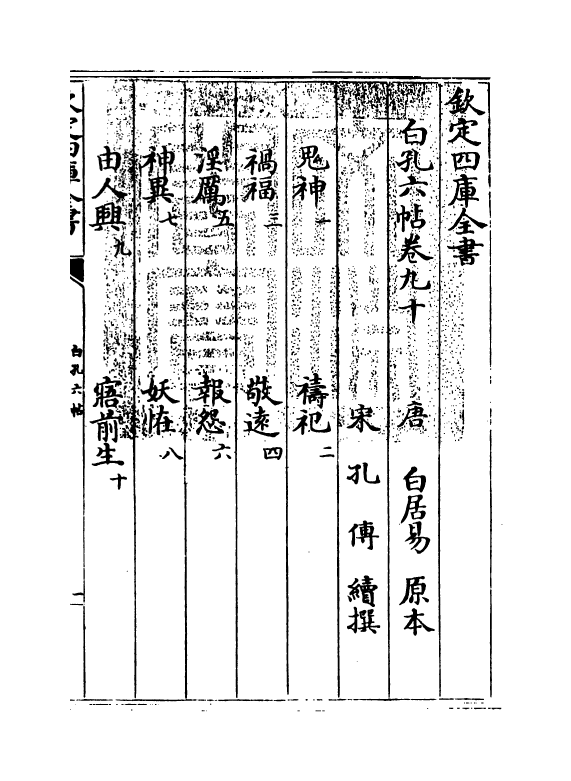 欽定四庫全書
白孔六帖卷九十
唐 白居易 原本
宋 孔傳 續撰
鬼神一 禱祀二
禍福三 敬遠四
淫厲五 報怨六
神異七 妖恠八
由人興九 寤前生十
欽定四庫全書 白孔六帖 一